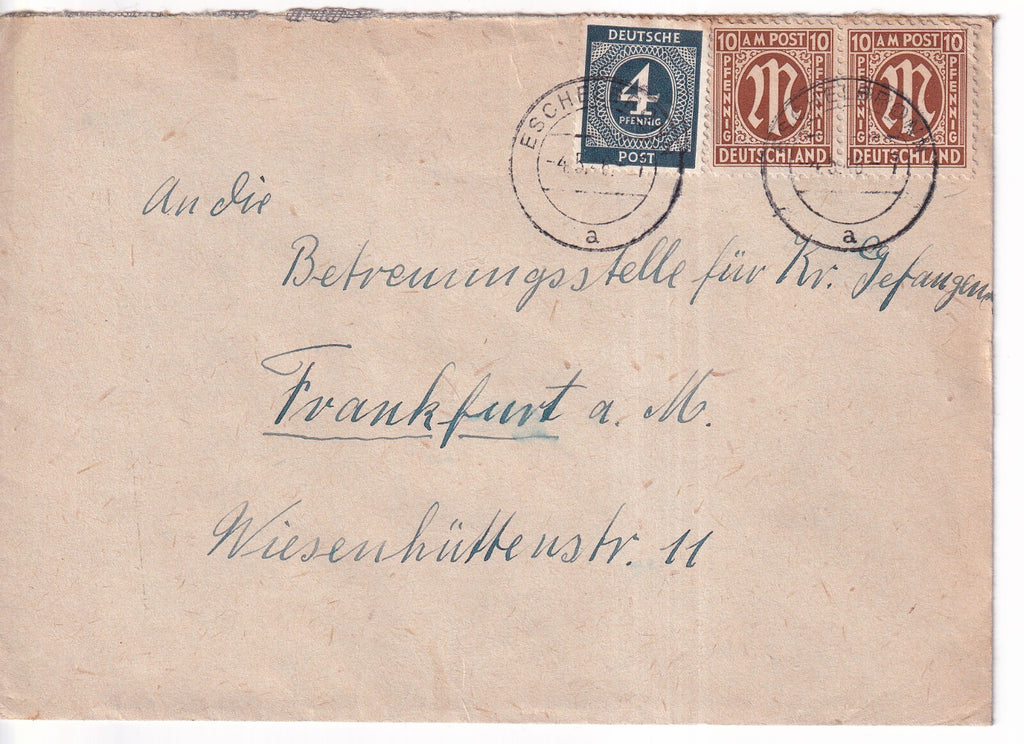 DEUTSCHE
4
PFENNIG
POST
10 AM POST 10
PFENNIG
PFENNIG
M
DEUTSCHLAND
10 AM POST 10
PFENNIG
PFENNIG
M
DEUTSCHLAND
a
a
An die
Betreuungsstelle für Kr. Gefangene
Frankfurt a. M.
Wiesenhüttenstr. 11